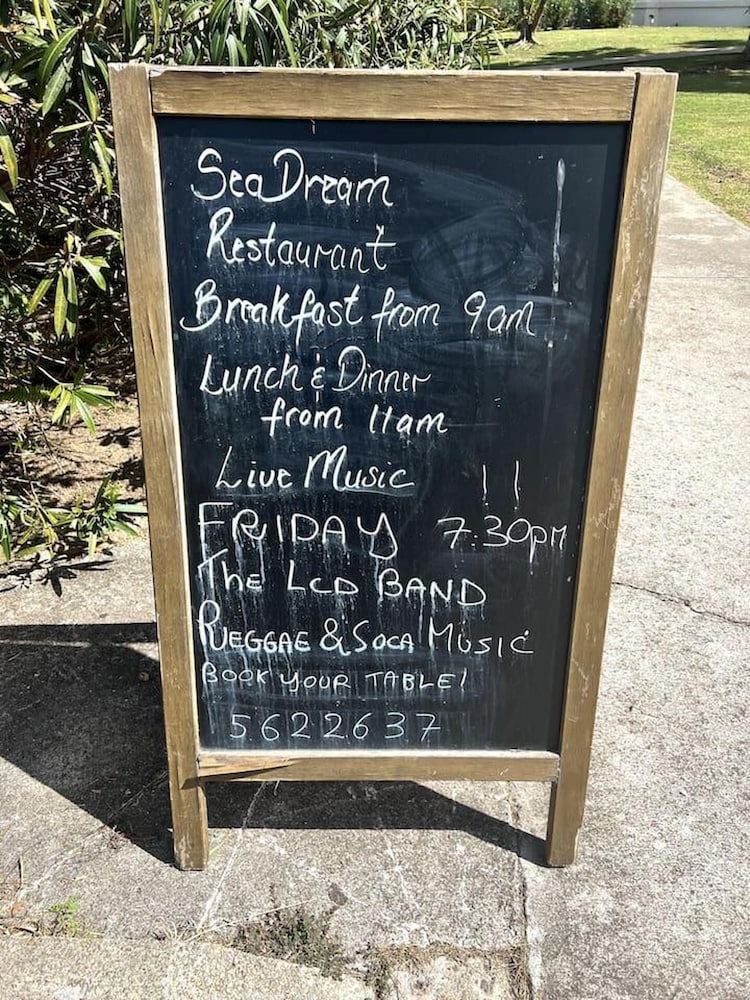 Sea Dream
Restaurant
Breakfast from 9am
Lunch & Dinner
from 11am
Live Music
FRIDAY 7.30pm
The LCD BAND
REGGAE & SOCA MUSIC
BOOK YOUR TABLE!
5622637